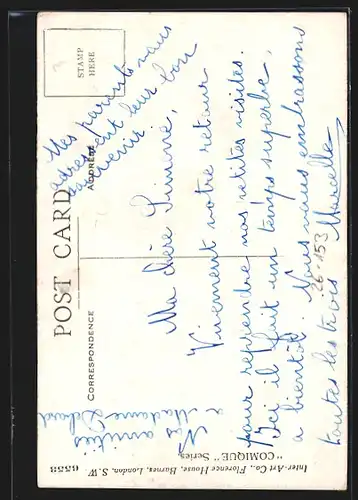 POST CARD
CORRESPONDENCE
ADDRESS
STAMP
HERE
Mes parents vous
adressent leur bon
souvenir
Ma chère Simone,
Vivement notre retour
pour reprendre nos petites visites.
Ici il fait un temps superbe,
a bientôt. Nous vous embrassons
toutes les trois Marcelle
Nos amitiés
a Madame
26-153
Inter-Art Co., Florence House, Barnes, London, S.W.
"COMIQUE" Series.
6553